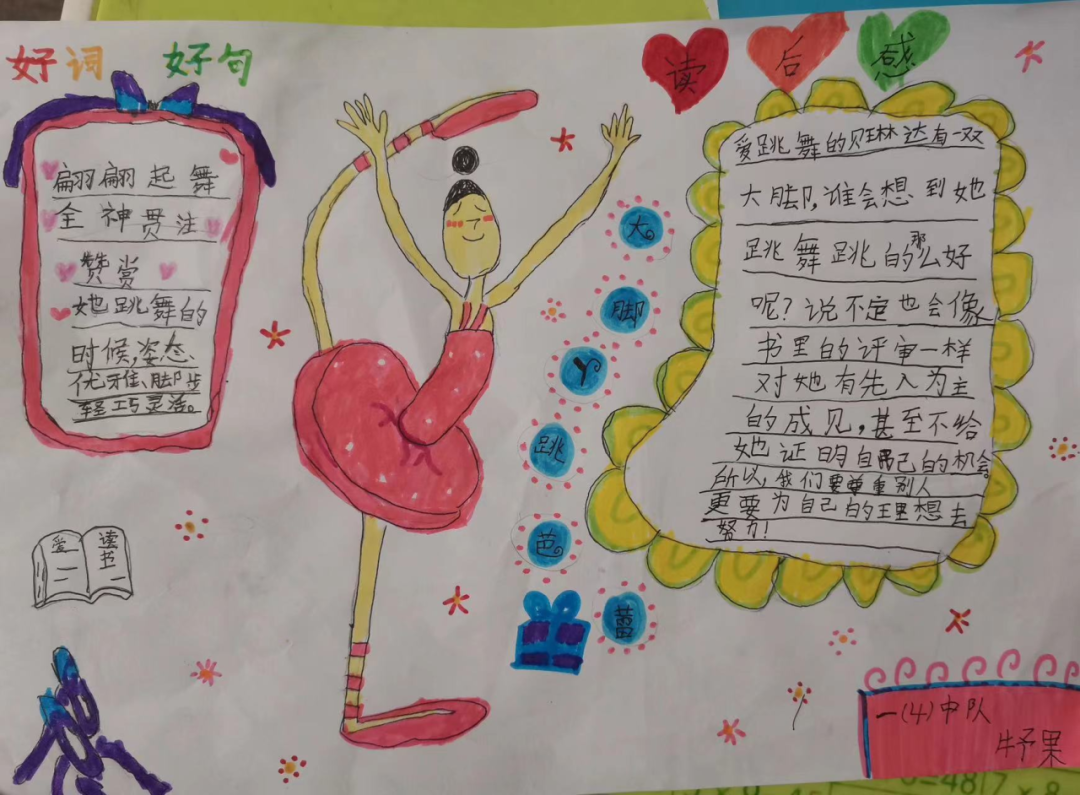 好词 好句
翩翩起舞
全神贯注
赞赏
她跳舞的
时候,姿态
优雅、脚步
轻巧灵活。
大
脚
丫
跳
芭
蕾
读后感
爱跳舞的贝琳达有一双
大脚,谁会想到她
跳舞跳的那么好
呢?说不定也会像
书里的评审一样
对她有先入为主
的成见,甚至不给
她证明自己的机会。
所以,我们要尊重别人
更要为自己的理想去
努力!
爱读书
一(4)中队
牛予果